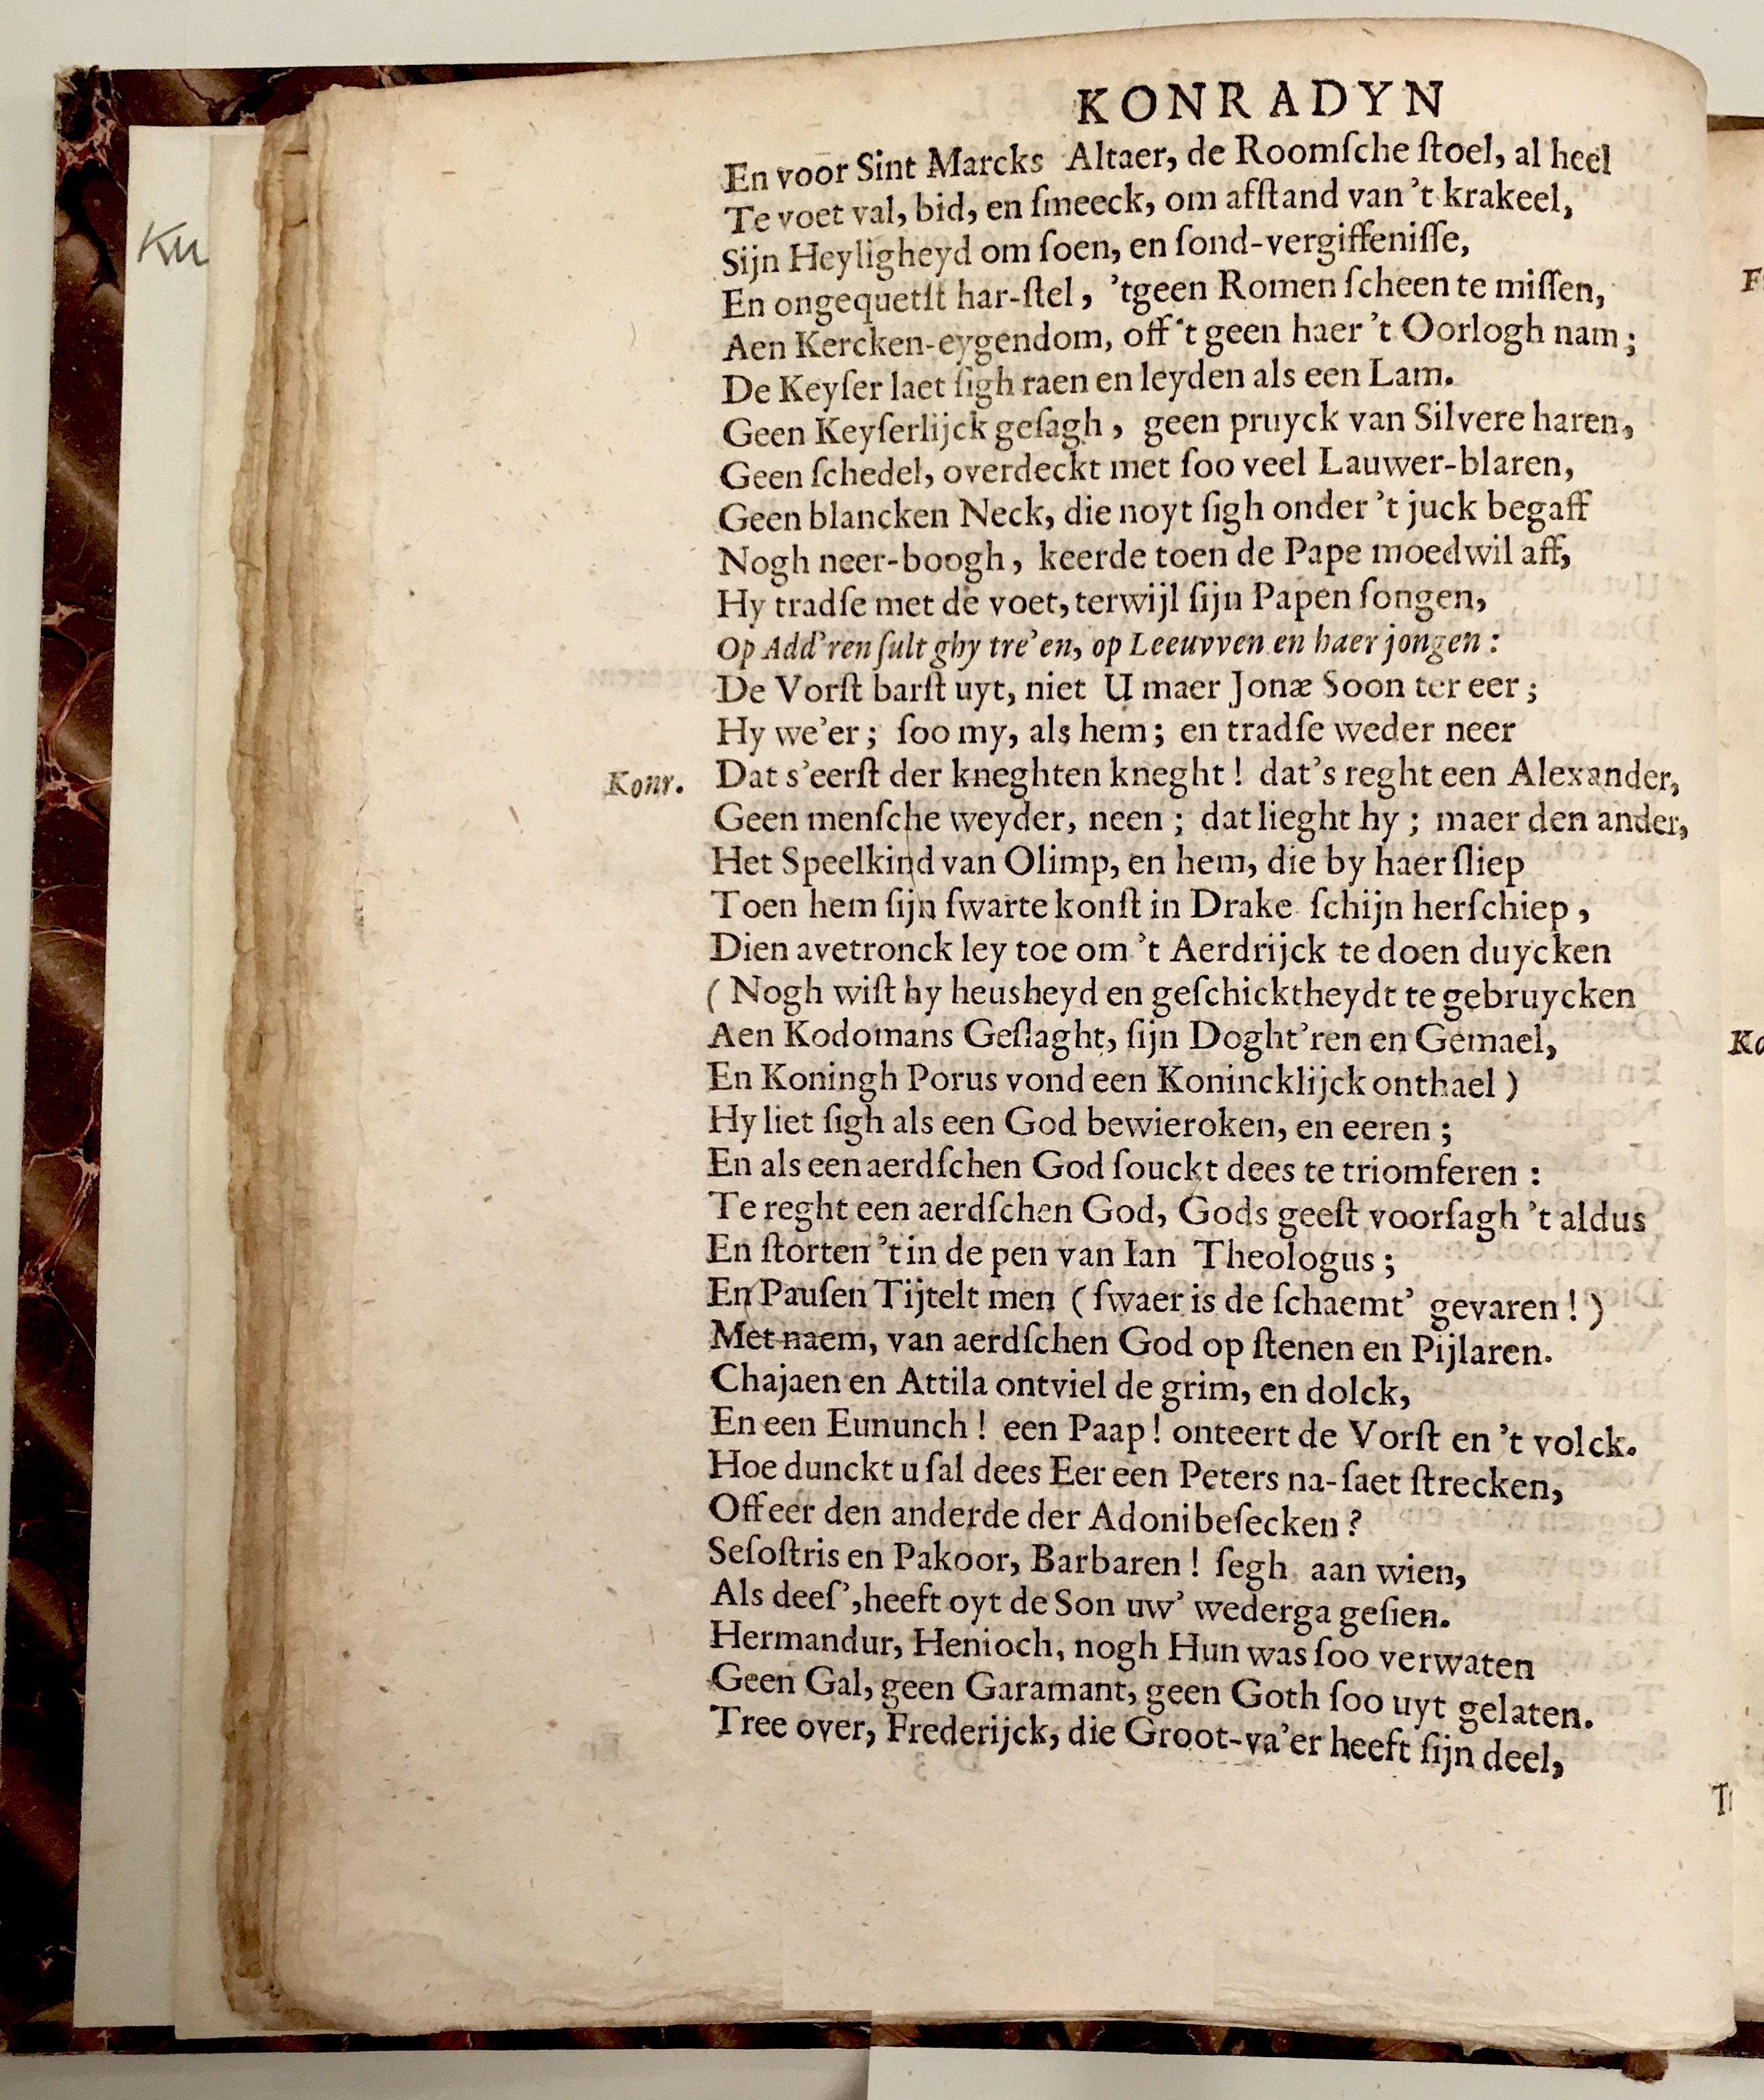 KONRADYN
En voor Sint Marcks Altaer, de Roomſche ſtoel, al heel
Te voet val, bid, en ſmeeck, om afſtand van 't krakeel,
Sijn Heyligheyd om ſoen, en ſond-vergiffeniſſe,
En ongequetſt har-ſtel, 'tgeen Romen ſcheen te miſſen,
Aen Kercken-eygendom, off 't geen haer 't Oorlogh nam;
De Keyſer laet ſigh raen en leyden als een Lam.
Geen Keyſerlijck geſagh, geen pruyck van Silvere haren,
Geen ſchedel, overdeckt met ſoo veel Lauwer-blaren,
Geen blancken Neck, die noyt ſigh onder 't juck begaff
Nogh neer-boogh, keerde toen de Pape moedwil aff,
Hy tradſe met de voet, terwijl ſijn Papen ſongen,
Op Add'ren ſult ghy tre'en, op Leeuvven en haer jongen:
De Vorſt barſt uyt, niet U maer Jonæ Soon ter eer;
Hy we'er; ſoo my, als hem; en tradſe weder neer
Konr. Dat s'eerſt der kneghten kneght! dat's reght een Alexander,
Geen menſche weyder, neen; dat lieght hy; maer den ander,
Het Speelkind van Olimp, en hem, die by haer ſliep
Toen hem ſijn ſwarte konſt in Drake ſchijn herſchiep,
Dien avetronck ley toe om 't Aerdrijck te doen duycken
(Nogh wiſt hy heusheyd en geſchicktheydt te gebruycken
Aen Kodomans Geſlaght, ſijn Doght'ren en Gemael,
En Koningh Porus vond een Konincklijck onthael)
Hy liet ſigh als een God bewieroken, en eeren;
En als een aerdſchen God ſouckt dees te triomferen:
Te reght een aerdſchen God, Gods geeſt voorſagh 't aldus
En ſtorten 't in de pen van Ian Theologus;
En Pauſen Tijtelt men (ſwaer is de ſchaemt' gevaren!)
Met naem, van aerdſchen God op ſtenen en Pijlaren.
Chajaen en Attila ontviel de grim, en dolck,
En een Eununch! een Paap! onteert de Vorſt en 't volck.
Hoe dunckt u ſal dees Eer een Peters na-ſaet ſtrecken,
Off eer den anderde der Adonibeſecken?
Seſoſtris en Pakoor, Barbaren! ſegh aan wien,
Als deeſ', heeft oyt de Son uw' wederga geſien.
Hermandur, Henioch, nogh Hun was ſoo verwaten
Geen Gal, geen Garamant, geen Goth ſoo uyt gelaten.
Tree over, Frederijck, die Groot-va'er heeft ſijn deel,
Ku